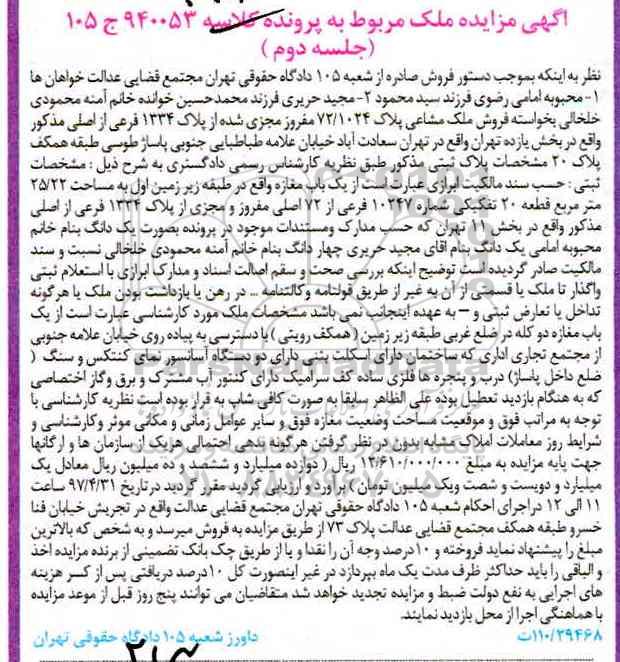 آگهی مزایده ملک مربوط به پرونده کلاسه ۹۴۰۰۵۳ ج ۱۰۵
(جلسه دوم )
نظر به اینکه بموجب دستور فروش صادره از شعبه ۱۰۵ دادگاه حقوقی تهران مجتمع قضایی عدالت خواهان ها
۱- محبوبه امامی رضوی فرزند سید محمود ۲- مجید حریری فرزند محمدحسین خوانده خانم آمنه محمودی
خلخالی بخواسته فروش ملک مشاعی پلاک ۷۲/۱۰۲۴ مفروز مجزی شده از پلاک ۱۳۳۴ فرعی از اصلی مذکور
واقع در بخش یازده تهران واقع در تهران سعادت آباد خیابان علامه طباطبایی جنوبی پاساژ طوسی طبقه همکف
پلاک ۲۰ مشخصات پلاک ثبتی مذکور طبق نظریه کارشناس رسمی دادگستری به شرح ذیل : مشخصات
ثبتی : حسب سند مالکیت ابرازی عبارت است از یک باب مغازه واقع در طبقه زیر زمین اول به مساحت ۲۵/۲۲
متر مربع قطعه ۲۰ تفکیکی شماره ۱۰۲۴۷ فرعی از ۷۲ اصلی مفروز و مجزی از پلاک ۱۳۳۴ فرعی از اصلی
مذکور واقع در بخش ۱۱ تهران که حسب مدارک ومستندات موجود در پرونده بصورت یک دانگ بنام خانم
محبوبه امامی یک دانگ بنام اقای مجید حریری چهار دانگ بنام خانم آمنه محمودی خلخالی نسبت و سند
مالکیت صادر گردیده است توضیح اینکه بررسی صحت و سقم اصالت اسناد و مدارک ابرازی با استعلام ثبتی
واگذار تا ملک یا قسمتی از آن به غیر از طریق قولنامه وکالتنامه ... در رهن یا بازداشت بودن ملک یا هرگونه
تداخل یا تعارض ثبتی و – به عهده اینجانب نمی باشد مشخصات ملک مورد کارشناسی عبارت است از یک
باب مغازه دو کله در ضلع غربی طبقه زیر زمین ( همکف رویتی ) با دسترسی به پیاده روی خیابان علامه جنوبی
از مجتمع تجاری اداری که ساختمان دارای اسکلت بتنی دارای دو دستگاه آسانسور نمای کنتکس و سنگ (
ضلع داخل پاساژ) درب و پنجره ها فلزی ساده کف سرامیک دارای کنتور آب مشترک و برق وگاز اختصاصی
که به هنگام بازدید تعطیل بوده علی الظاهر سابقا به صورت کافی شاپ به قرار بوده است نظریه کارشناسی با
توجه به مراتب فوق و موقعیت مساحت وضعیت مغازه فوق و سایر عوامل زمانی و مکانی موثر وکارشناسی و
شرایط روز معاملات املاک مشابه بدون در نظر گرفتن هرگونه بدهی احتمالی هریک از سازمان ها و ارگانها
جهت پایه مزایده به مبلغ ۱۲/۶۱۰/۰۰۰/۰۰۰ ریال ( دوازده میلیارد و ششصد و ده میلیون ریال معادل یک
میلیارد و دویست و شصت ویک میلیون تومان ) براورد و ارزیابی گردید مقرر گردید در تاریخ ۹۷/۴/۳۱ ساعت
۱۱ الی ۱۲ دراجرای احکام شعبه ۱۰۵ دادگاه حقوقی تهران مجتمع قضایی عدالت واقع در تجریش خیابان فنا
خسرو طبقه همکف مجتمع قضایی عدالت پلاک ۷۳ از طریق مزایده به فروش میرسد و به شخص که بالاترین
مبلغ را پیشنهاد نماید فروخته و ۱۰درصد وجه آن را نقدا و یا از طریق چک بانک تضمینی از برنده مزایده اخذ
و الباقی را باید حداکثر ظرف مدت یک ماه بپردازد در غیر اینصورت کل ۱۰درصد دریافتی پس از کسر هزینه
های اجرایی به نفع دولت ضبط و مزایده تجدید خواهد شد متقاضیان می توانند پنج روز قبل از موعد مزایده
با هماهنگی اجرا از محل بازدید نمایند.
۱۱۰/۲۹۴۶۸ت داورز شعبه ۱۰۵ دادگاه حقوقی تهران